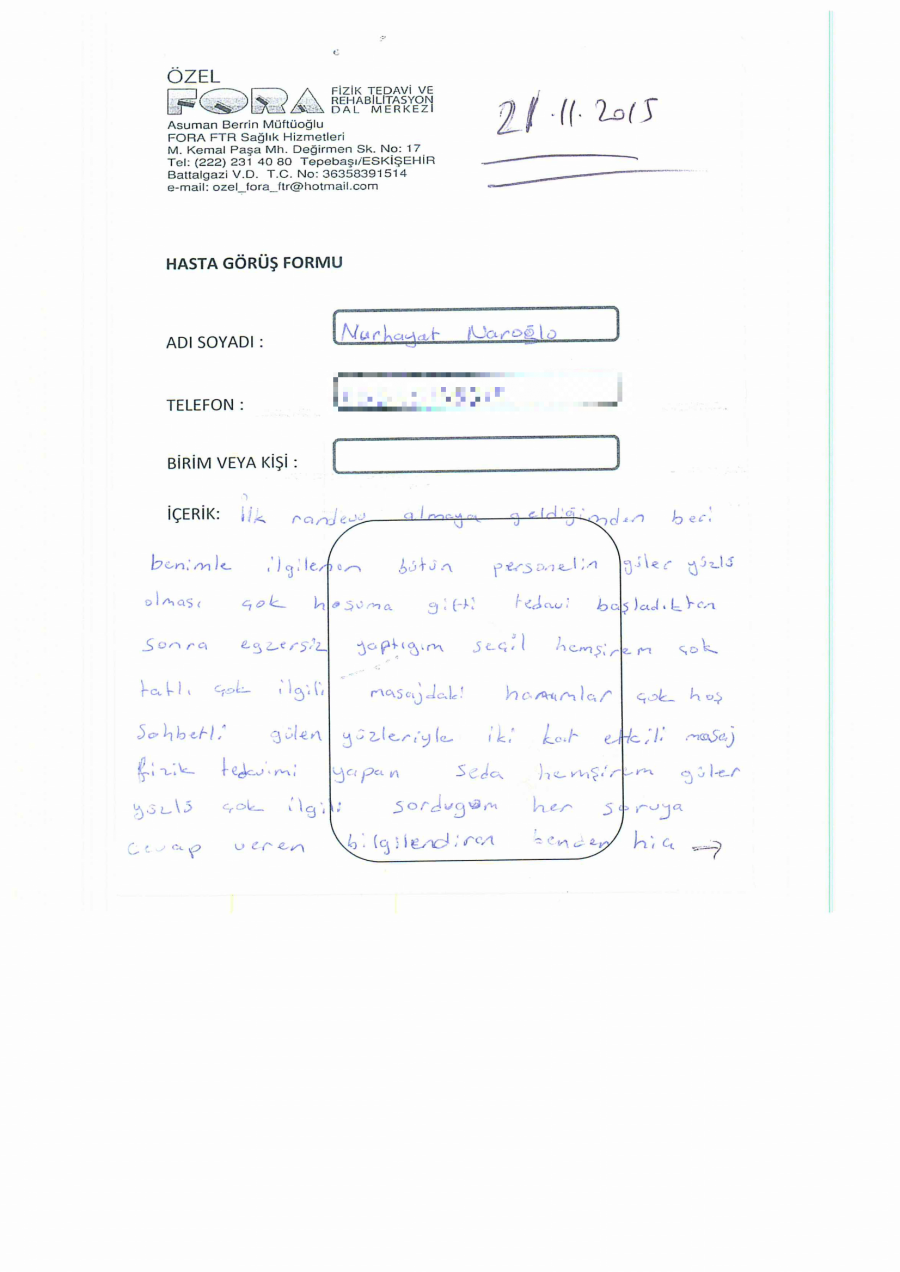 ÖZEL
FORA FİZİK TEDAVİ VE
REHABİLİTASYON
DAL MERKEZİ
Asuman Berrin Müftüoğlu
FORA FTR Sağlık Hizmetleri
M. Kemal Paşa Mh. Değirmen Sk. No: 17
Tel: (222) 231 40 80 Tepebaşı/ESKİŞEHİR
Battalgazi V.D. T.C. No: 36358391514
e-mail: ozel_fora_ftr@hotmail.com
21.11.2015
HASTA GÖRÜŞ FORMU
ADI SOYADI : Nurhayat Naroğlo
TELEFON :
BİRİM VEYA KİŞİ :
İÇERİK: İlk randevu almaya geldiğimden beri
benimle ilgilenen bütün personelin güler yüzlü
olması çok hoşuma gitti tedavi başladıktan
sonra egzersiz yaptıgım seçil hemşirem çok
tatlı çok ilgili masajdaki hanımlar çok hoş
Sohbetli gülen yüzleriyle iki kat etkili masaj
fizik tedavimi yapan Seda hemşirem güler
yüzlü çok ilgili sordugum her soruya
cevap veren bilgilendiren benden hiç →